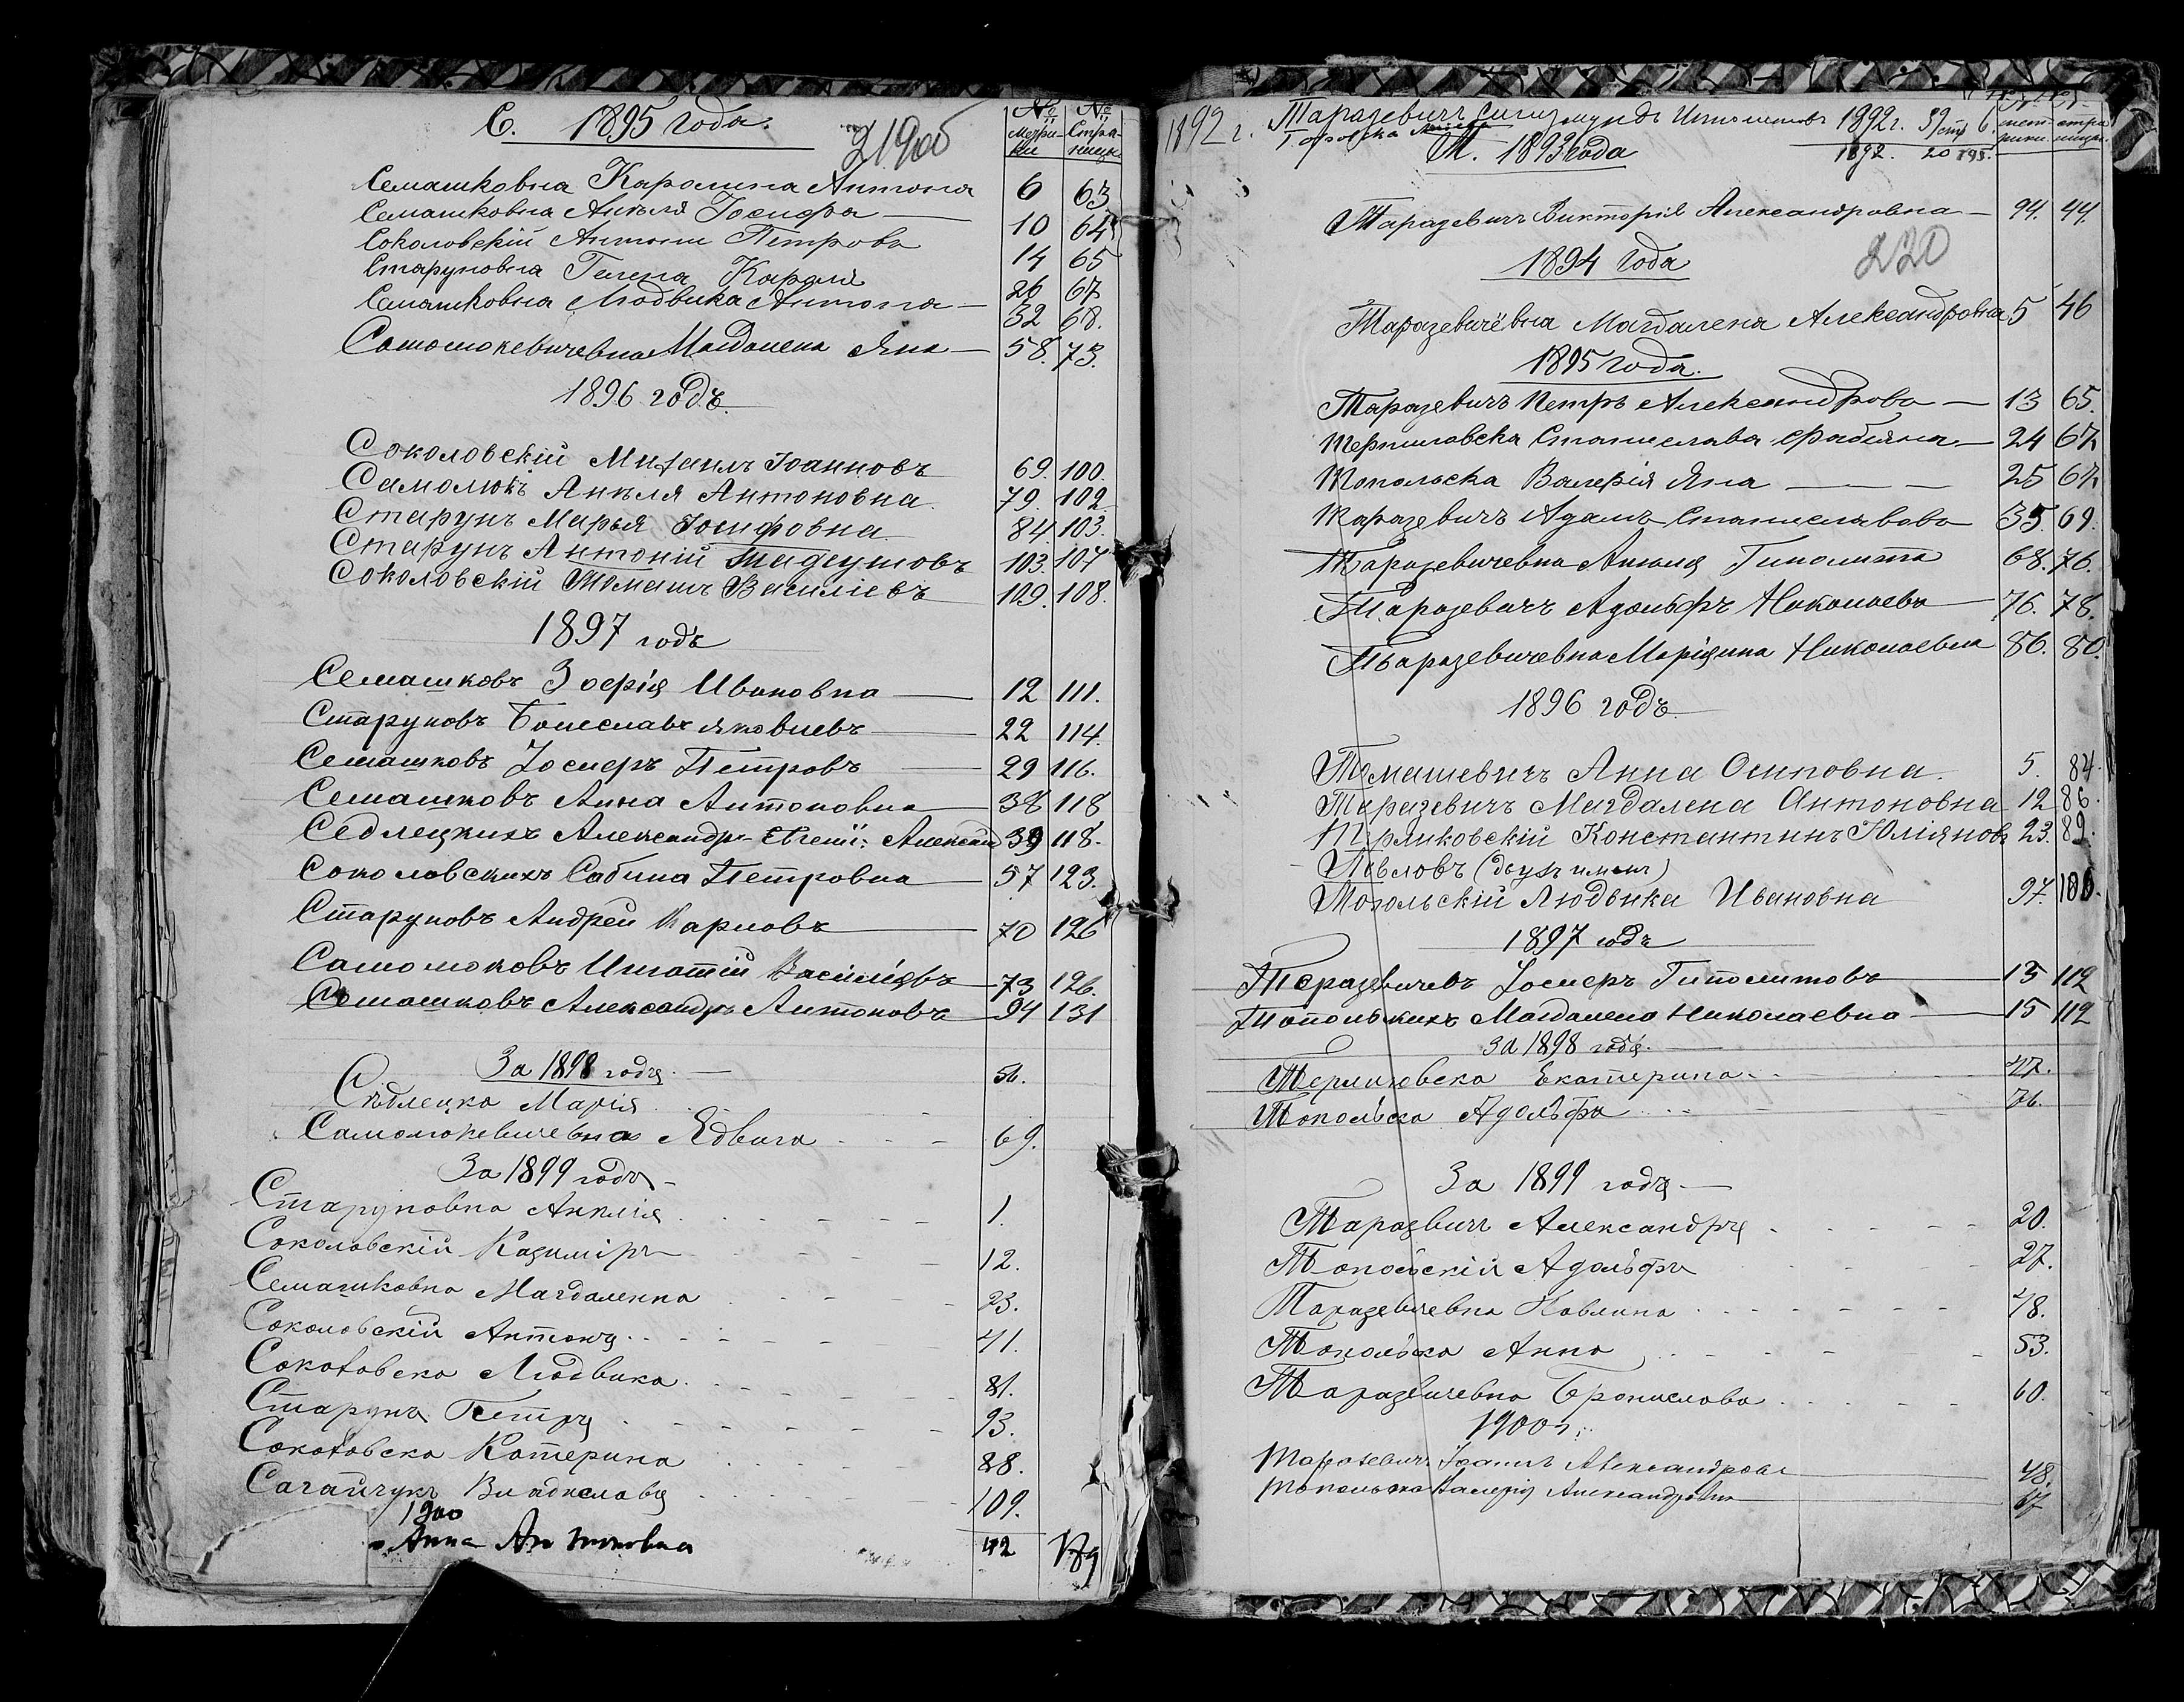 С. 1895 года.
№ метрики № страницы
219об
Семашковна Каролина Антона 6 63
Семашковна Анеля Іосифа 10 64
Соколовскій Антони Петровъ 14 65
Старуновна Гелена Кароля 26 67
Семашковна Людвика Антона 32 68.
Самолюкевичевна Магдалена Яна 58. 73.
1896 годъ.
Соколовскій Михаилъ Іоанновъ 69. 100.
Самолюкъ Анеля Антоновна. 79. 102.
Старунъ Марья Іосифовна. 84 103.
Старунъ Антоній Тадеушовъ 103. 107
Соколовскій Томашъ Василіевъ 109. 108.
1897 годъ
Семашковъ Зофія Ивановна 12 111.
Старуновъ Болеславъ Яковлевъ 22 114.
Семашковъ Іосифъ Петровъ 29 116.
Семашковъ Анна Антоновна 38 118
Седлецкихъ Александръ-Евгеній: Алексан 39 118.
Соколовскихъ Сабина Петровна 57 123.
Старуновъ Андрей Карловъ 70 126
Самолюковъ Игнатій Василіевъ 73 126.
Семашковъ Александръ Антоновъ 94 131
За 1898 годъ.
Сѣдлецка Марія 56.
Самолюкевичевна Ядвига 69.
За 1899 годъ
Старуновна Анеля 1.
Соколовскій Казиміръ 12.
Семашковна Магдаленна 23.
Соколовскій Антонъ 41.
Сокоłовска Людвика. 81.
Старунъ Петръ 93.
Сокоłовска Катерина 88.
Сагайчукъ Владиславъ 109.
1900
Анна Антоновна 42 189
1892 г. Таразевичъ Сигизмундъ Иполитовъ 1892 г. 39 стр 6.
1892. 20 195.
Т. 1893 года
Таразевичъ Викторія Александровна 94. 44.
220
1894 года
Таразевичёвна Магдалена Александровна 5 46
1895 года.
Таразевичъ Петръ Александрова 13 65.
Терпиловска Станислава Фабіяна 24 67
Топольска Валерія Яна 25 67
Таразевичъ Адамъ Станиславова 35. 69.
Таразевичевна Анеля Гиполита 68. 76.
Таразевичъ Адольфъ Николаева 76. 78.
Таразевичевна Маріянна Николаевна 86. 80.
1896 годъ.
Томашевичъ Анна Осиповна. 5. 84.
Таразевичъ Магдалена Антоновна 12 86.
Терликовскій Константинъ Юліяновъ 23. 89.
Павловъ (двухъ именъ)
Топольскій Людвика Ивановна 97. 106.
1897 годъ
Таразевичевъ Іосифъ Гиполитовъ 13 112
Топольскихъ Магдалена Николаевна 15 112
За 1898 годъ.
Терликовска Екатерина 47.
Топольска Адольфа 76.
За 1899 годъ
Таразвичъ Александръ 20.
Топольскій Адольфъ 27.
Таразевичевна Павлина 48.
Топольска Анна 53.
Таразевичевна Бронислава 60.
1900 г.
Таразевичъ Іоаннъ Александровъ 48.
Топольска Валерія Александровна 67